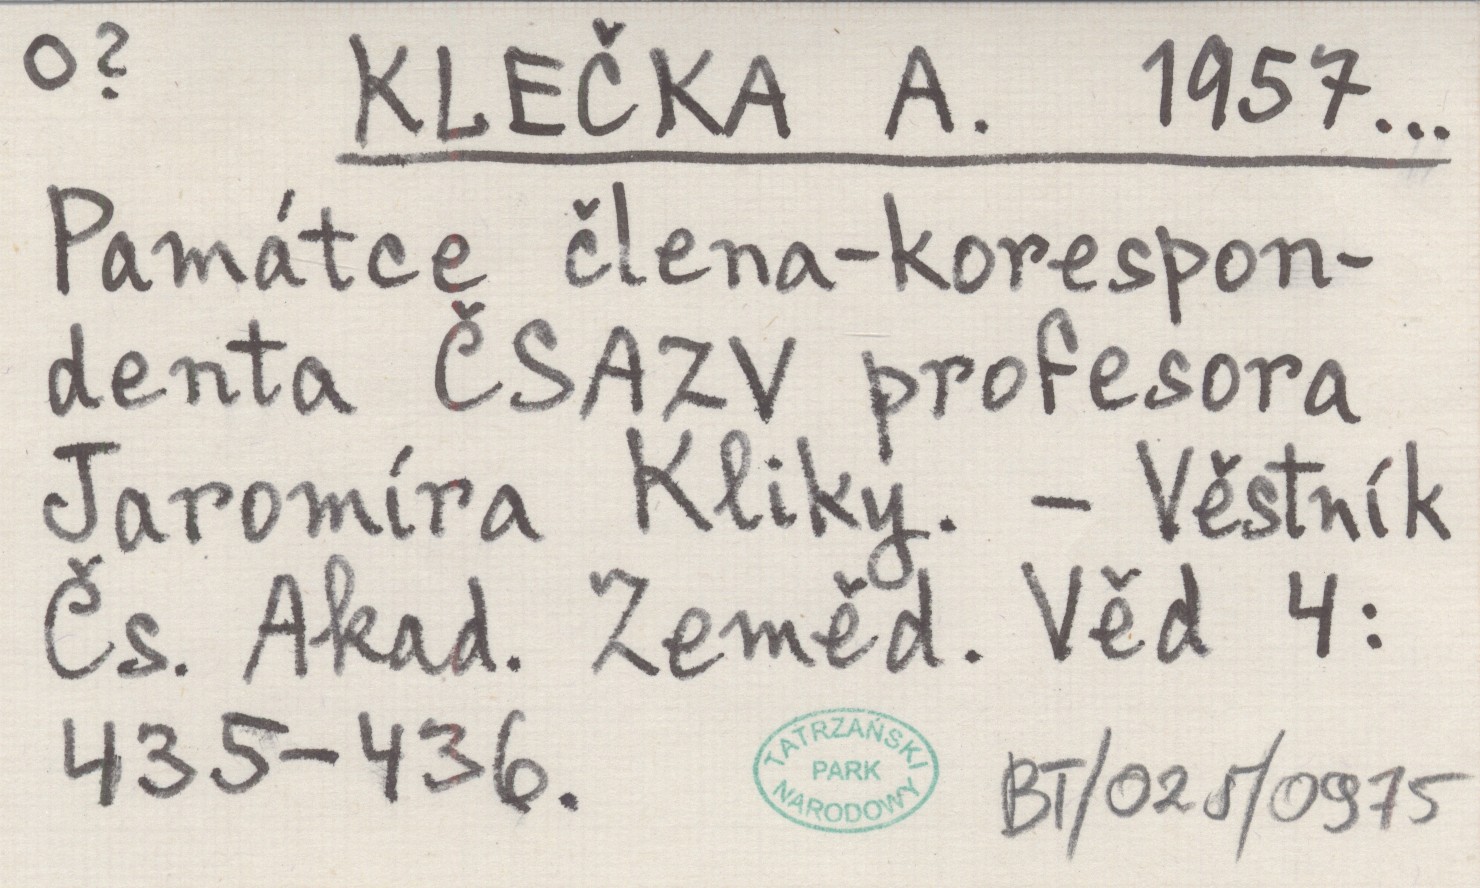 o? KLEČKA A. 1957...
Památce člena-korespon-
denta ČSAZV profesora
Jaromíra Kliky. - Věstník
Čs. Akad. Zeměd. Věd 4:
435-436.
TATRZAŃSKI
PARK
NARODOWY
BT/025/0975